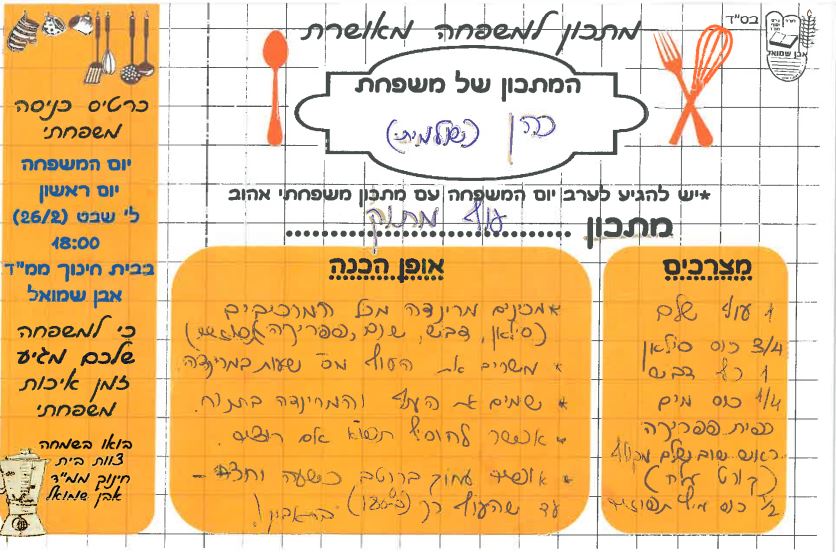 בס"ד
אבן שמואל
מתכון למשפחה מאושרת
המתכון של משפחת
כהן (שולמית)
*יש להגיע לערב יום המשפחה עם מתכון משפחתי אהוב
מתכון עוף מתוק
מצרכים
1 עוף שלם
3/4 כוס סילאן
1 כף דבש
1/4 כוס מים
כפית פפריקה
ראש שום שלם
(קורט מלח)
1/2 כוס מיץ תפוזים
אופן הכנה
*מכינים מרינדה מכל המרכיבים
(סילאן, דבש, שום, פפריקה
* משרים את העוף שעות במרינדה.
* שמים את העוף והמרינדה בתנור.
* אפשר להוסיף אם רוצים.
* ברוטב כשעה וחצי -
עד שהעוף רך (180°)
כרטיס כניסה
משפחתי
יום המשפחה
יום ראשון
ל' שבט (26/2)
18:00
בבית חינוך ממ"ד
אבן שמואל
כי למשפחה
שלכם מגיע
זמן איכות
משפחתי
בואו בשמחה
צוות בית
חינוך ממ"ד
אבן שמואל